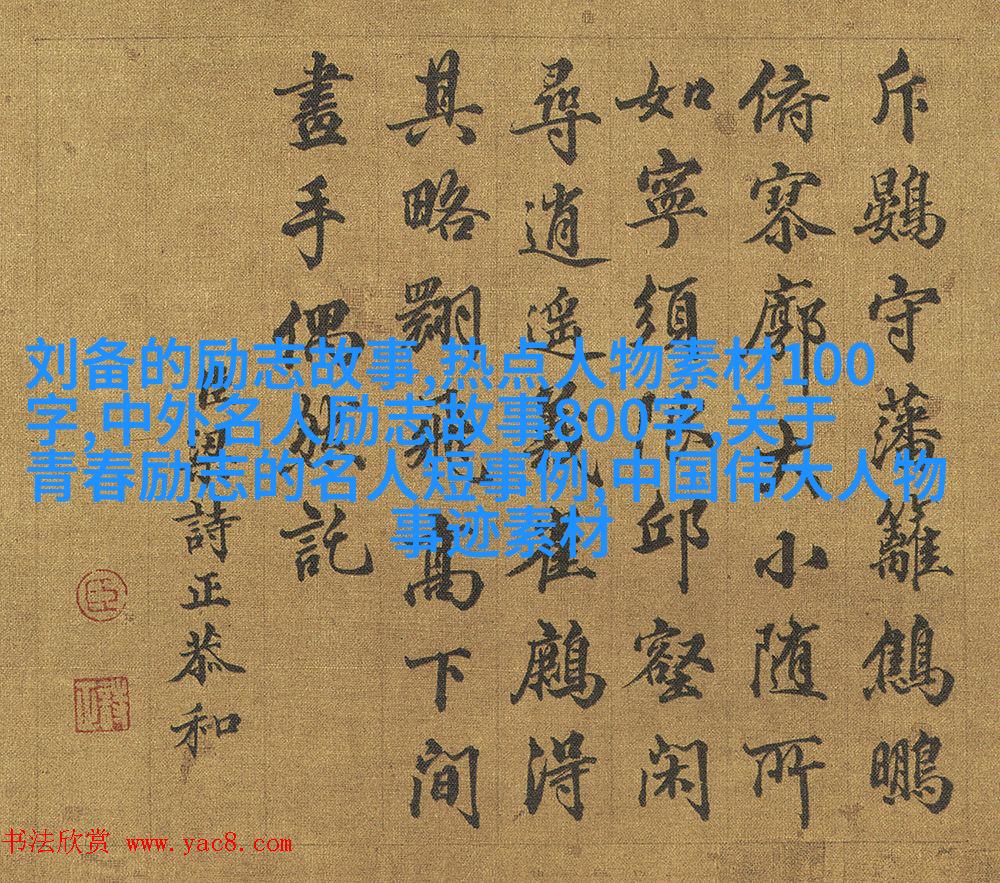 斥鷃守藩籬鷦鵬
俯寥廓大小随所
如寧須邱壑闲
尋逍遥義崔得
其略翾飛高下间
畫手偶託
臣梁詩正恭和
臣
刘备的励志故事,热点人物素材100
字,中外名人励志故事800字,关于
青春励志的名人短事例,中国伟大人物
事迹素材
书法欣赏 www.yac8.com